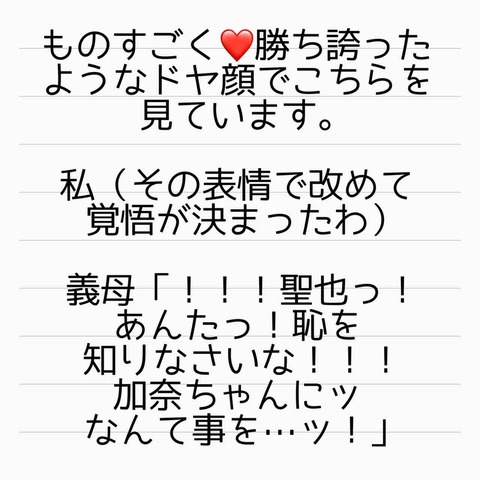 ものすごく❤️勝ち誇った
ようなドヤ顔でこちらを
見ています。
私（その表情で改めて
覚悟が決まったわ）
義母「！！！聖也っ！
あんたっ！恥を
知りなさいな！！！
加奈ちゃんにッ
なんて事を…ッ！」